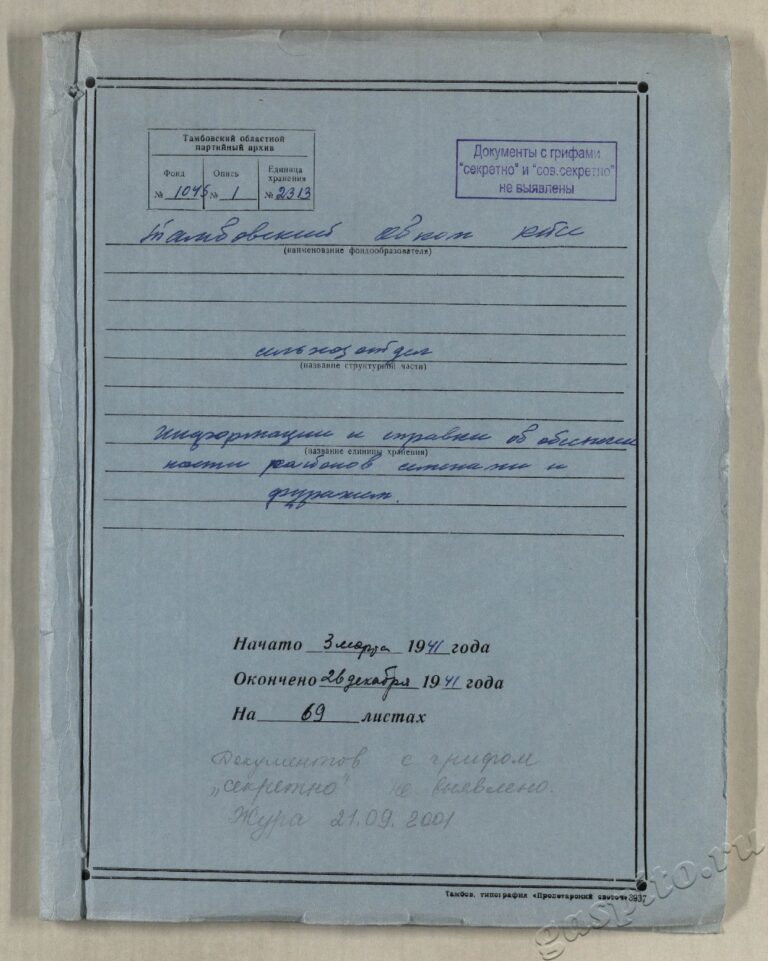 Тамбовский областной
партийный архив
Фонд Опись Единица
хранения
№ 1045 № 1 № 2313
Документы с грифами
"секретно" и "сов.секретно"
не выявлены
Тамбовский обком КПСС
(наименование фондообразователя)
сельхозотдел
(название структурной части)
Информации и справки об обеспечен
(название единицы хранения)
ности районов семенами и
фуражем.
Начато 3 марта 1941 года
Окончено 26 декабря 1941 года
На 69 листах
Документов с грифом
„секретно" не выявлено.
Жура 21.09.2001
Тамбов, типография «Пролетарский светоч» 3937
gaspito.ru